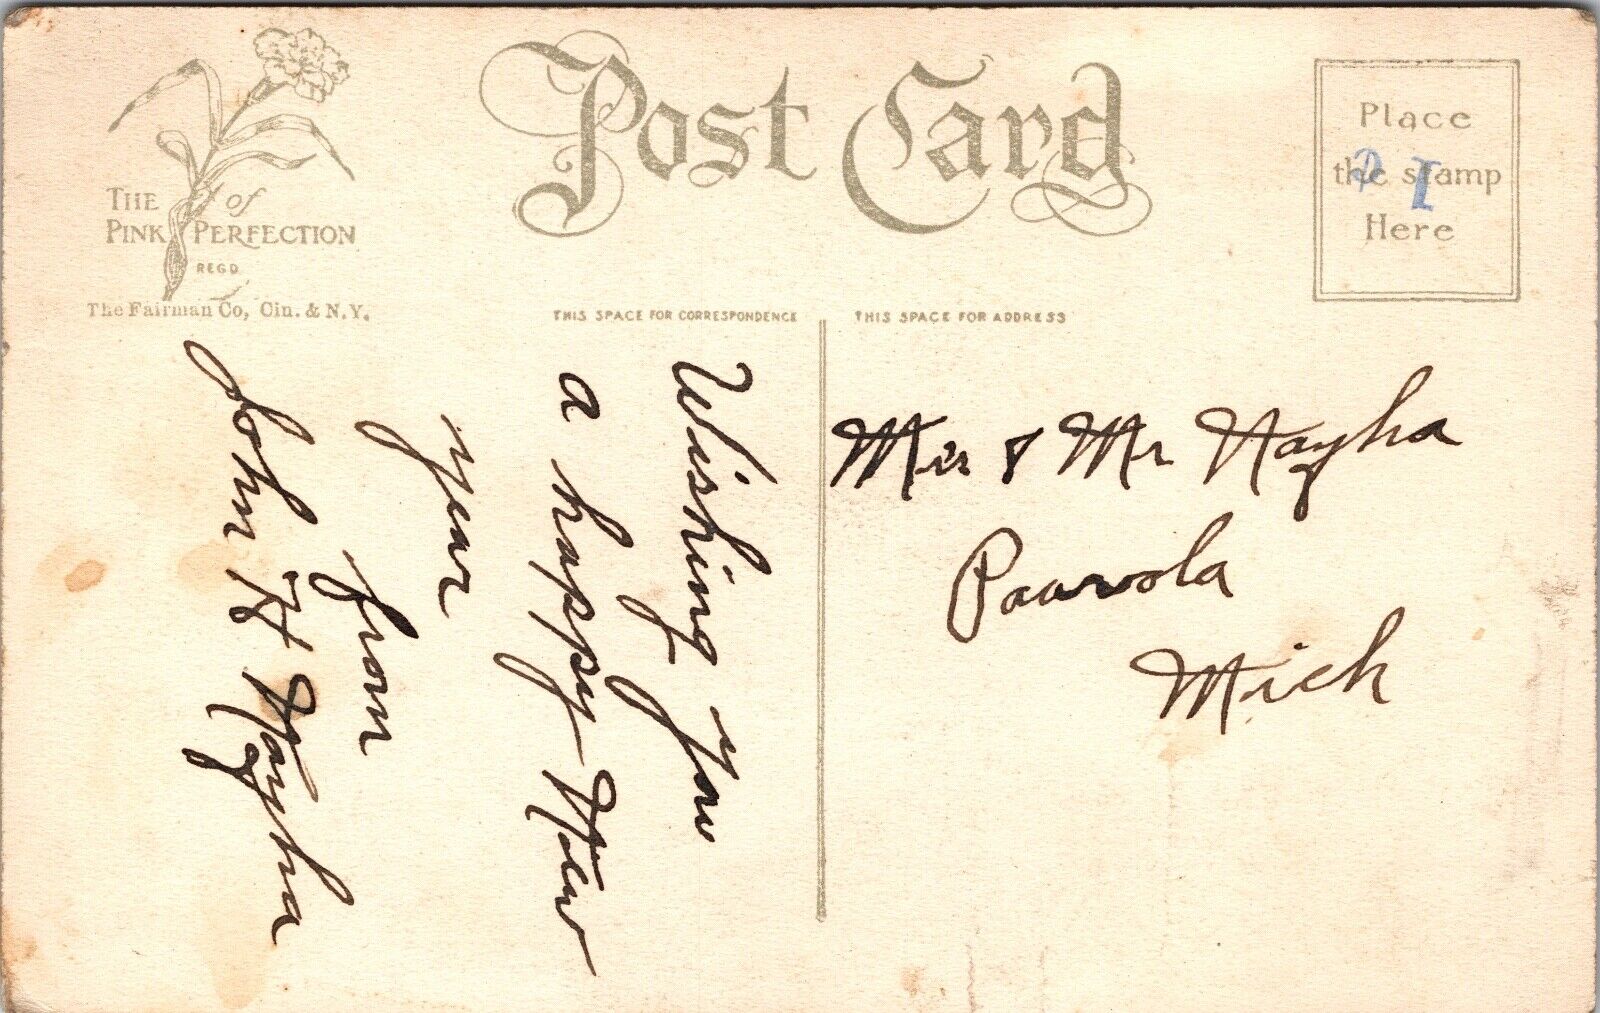 Post Card
THE of
PINK PERFECTION
REGD
The Fairman Co, Cin. & N.Y.
Place
the stamp
Here
I
THIS SPACE FOR CORRESPONDENCE
THIS SPACE FOR ADDRESS
Wishing you
a happy New
year
from
John H Nayha
Mrs & Mr Nayha
Paavola
Mich